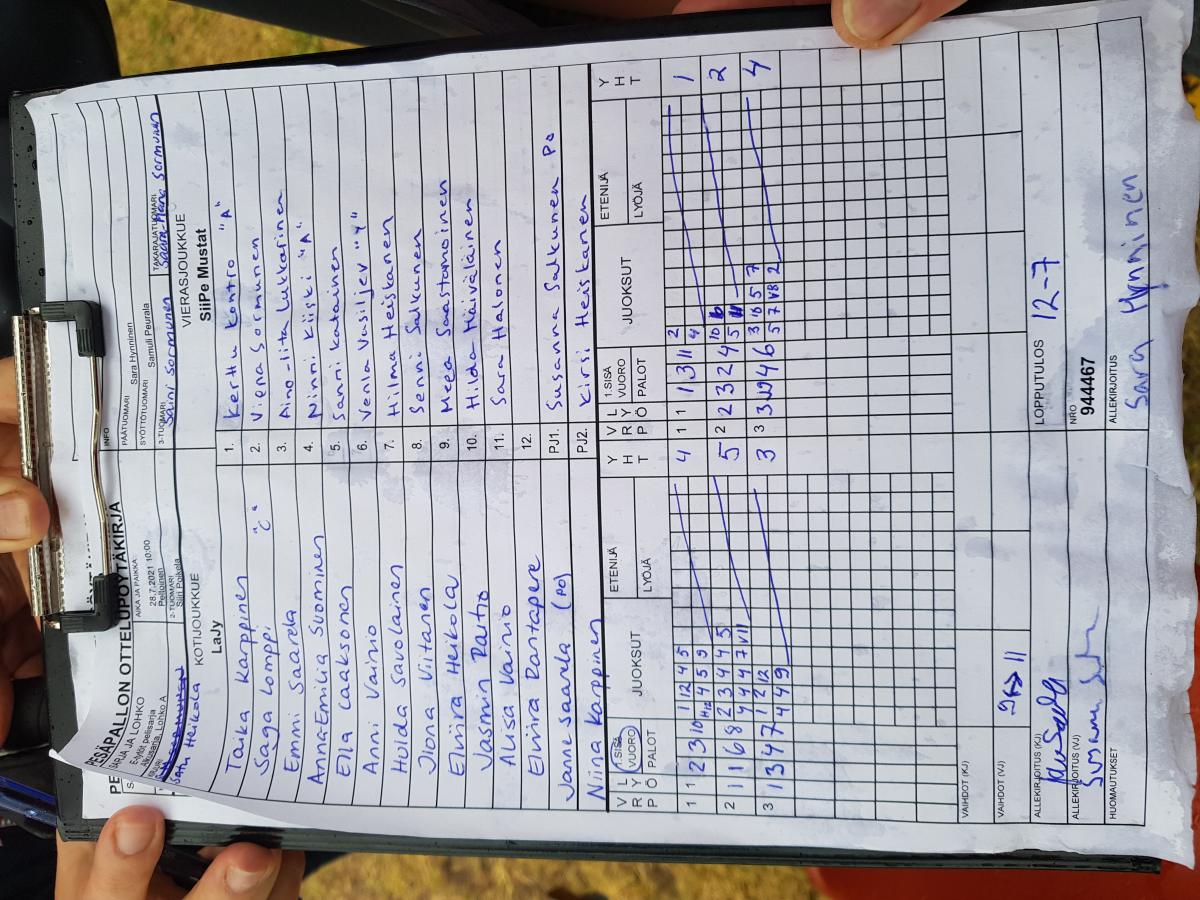 PESÄPALLON OTTELUPÖYTÄKIRJA
SARJA JA LOHKO
E-tytöt pelisarja
Alkusarja, Lohko A
AIKA JA PAIKKA
28.7.2021 10:00
Peltoinen
2-TUOMARI
Siiri Poikola
INFO
PÄÄTUOMARI
Sara Hynninen
SYÖTTÖTUOMARI
Samuli Peurala
3-TUOMARI
Saini Sormunen
TAKARAJATUOMARI
Saara-Maria Sormunen
Satu Heikola
KOTIJOUKKUE
LaJy
VIERASJOUKKUE
SiiPe Mustat
Taika Karppinen 1. Kerttu Kontro "A"
Saga Lomppi "C" 2. Viena Sormunen
Emmi Saarela 3. Aino-Iita Lukkarinen
Anna-Emilia Suominen 4. Ninni Kiiski "A"
Ella Laaksonen 5. Sanni Katainen
Anni Vainio 6. Venla Vasiljev "Y"
Hulda Savolainen 7. Hilma Heiskanen
Ilona Viitanen 8. Senni Salkunen
Elviira Heikola 9. Meea Saastamoinen
Jasmin Rautio 10. Hilda Häiväläinen
Alisa Vainio 11. Sara Halonen
Elviira Rantapere 12.
Janne Saarela (PO) PJ1. Susanna Salkunen Po
Niina Karppinen PJ2. Kirsi Heiskanen
V L R Y P Ö 1.SISÄ VUORO PALOT JUOKSUT ETENIJÄ LYÖJÄ Y H T V L R Y P Ö 1.SISÄ VUORO PALOT JUOKSUT ETENIJÄ LYÖJÄ Y H T
1 1 2 3 10 1 12 4 5 4 1 1 1 3 11 2 1
H12 4 5 9 4
2 1 1 6 8 2 3 4 4 5 5 2 2 3 2 4 10 2
4 4 4 7 11 5 11
3 1 3 4 7 1 2 12 3 3 3 4 6 3 10 5 7 4
4 4 9 5 7 VB 2
VAIHDOT (KJ)
VAIHDOT (VJ)
ALLEKIRJOITUS (KJ)
ALLEKIRJOITUS (VJ)
HUOMAUTUKSET
LOPPUTULOS 12-7
NRO
944467
ALLEKIRJOITUS
Sara Hynninen